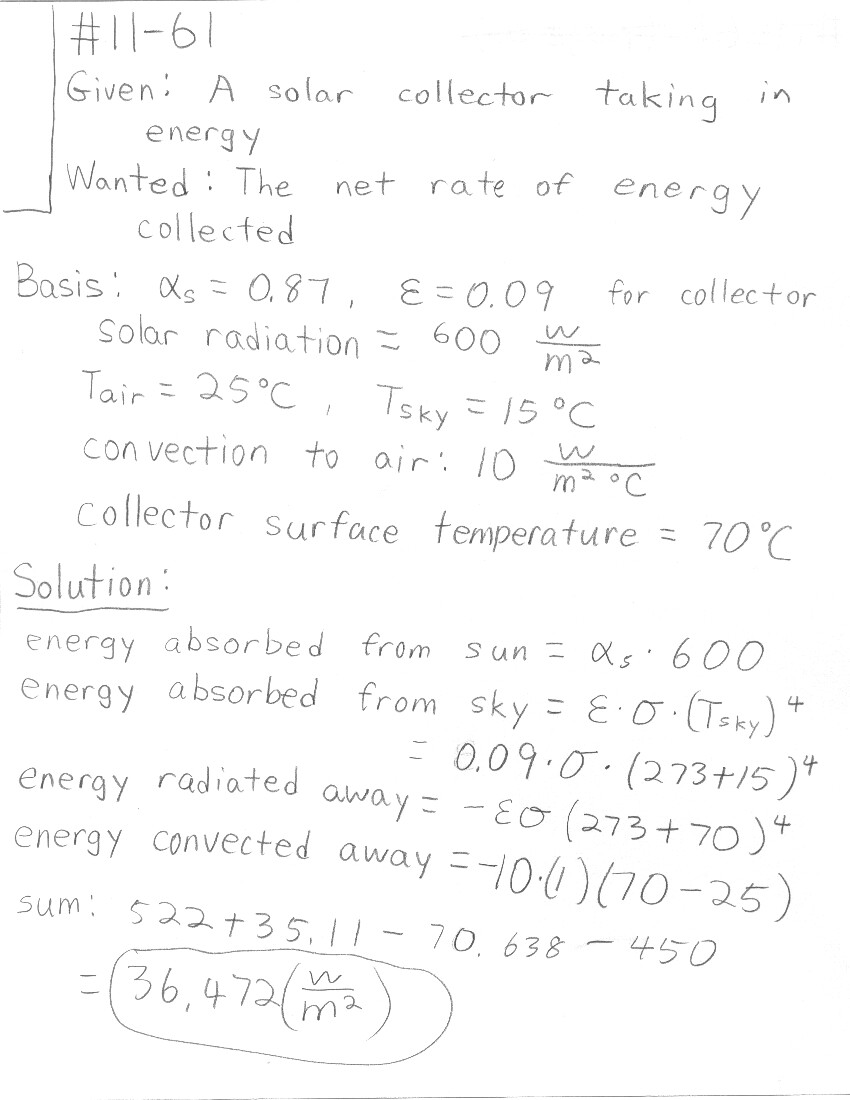 #11-61
Given: A solar collector taking in
energy
Wanted: The net rate of energy
collected
Basis: αs = 0.87, ε = 0.09 for collector
solar radiation = 600 w/m²
Tair = 25°C, Tsky = 15°C
convection to air: 10 w/m²°C
collector surface temperature = 70°C
Solution:
energy absorbed from sun = αs · 600
energy absorbed from sky = ε·σ·(Tsky)⁴
= 0.09·σ·(273+15)⁴
energy radiated away = -εσ(273+70)⁴
energy convected away = -10·(1)(70-25)
sum: 522 + 35.11 - 70.638 - 450
= 36,472 (w/m²)